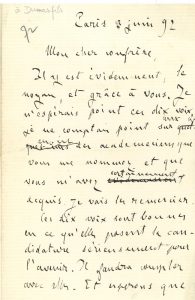 à Dumas fils
Paris 3 juin 92
Mon cher confrère,
Il y est évidemment, le
noyau, et grâce à vous. Je
n'espérais point ces dix voix,
je ne comptais point sur
des académiciens que
vous me nommez et que
vous m'avez certainement
acquis. Je vais les remercier.
Les dix voix sont bonnes
en ce qu'elles posent la can-
didature sérieusement pour
l'avenir. Il faudra compter
avec elle. Et espérons que